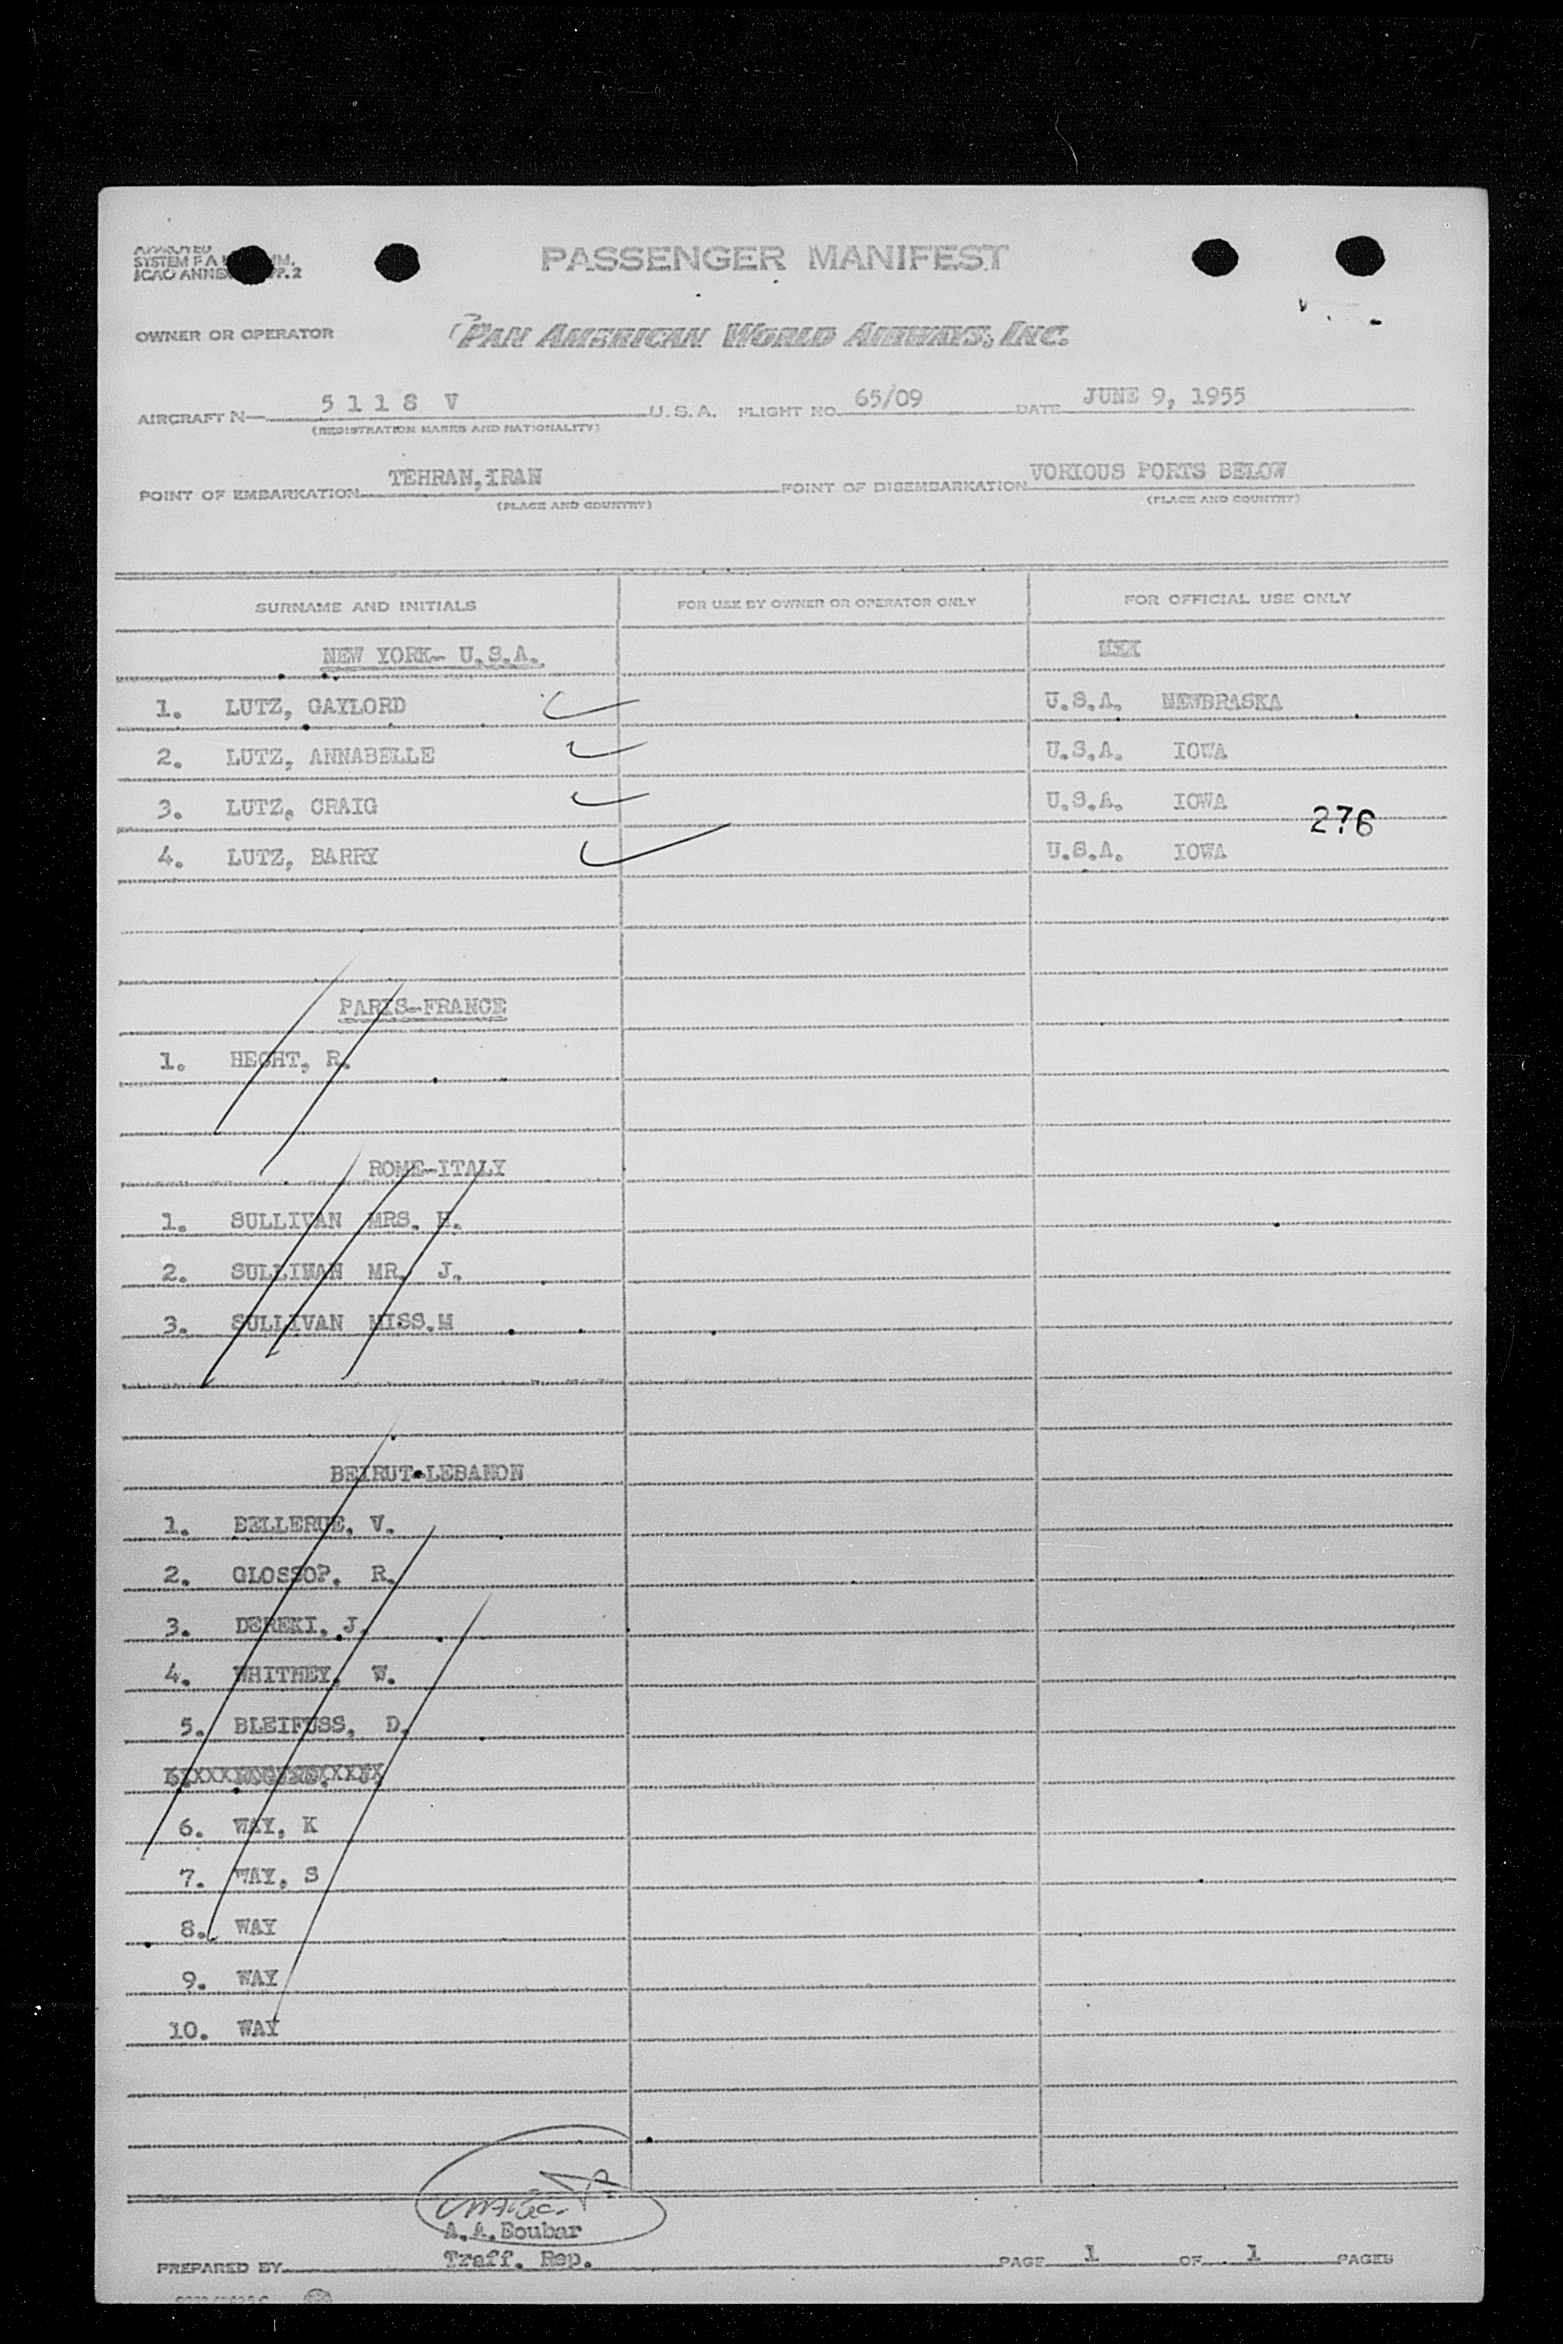 APPROVED
SYSTEM F A
ICAO ANNEX P. 2
PASSENGER MANIFEST
OWNER OR OPERATOR PAN AMERICAN WORLD AIRWAYS, INC.
AIRCRAFT N— 5 1 1 8 V U. S. A. FLIGHT NO. 65/09 DATE JUNE 9, 1955
(REGISTRATION MARKS AND NATIONALITY)
POINT OF EMBARKATION TEHRAN, IRAN POINT OF DISEMBARKATION VORIOUS PORTS BELOW
(PLACE AND COUNTRY) (PLACE AND COUNTRY)
SURNAME AND INITIALS FOR USE BY OWNER OR OPERATOR ONLY FOR OFFICIAL USE ONLY
NEW YORK- U.S.A.
1. LUTZ, GAYLORD U.S.A. NEWBRASKA
2. LUTZ, ANNABELLE U.S.A. IOWA
3. LUTZ, CRAIG U.S.A. IOWA
276
4. LUTZ, BARRY U.S.A. IOWA
PARIS-FRANCE
1. HECHT, R.
ROME-ITALY
1. SULLIVAN MRS. H.
2. SULLIWAN MR. J.
3. SULLIVAN MISS.M
BEIRUT-LEBANON
1. BELLERUE, V.
2. GLOSSOP, R.
3. DEREKI, J.
4. WHITNEY, W.
5. BLEIFUSS, D.
6. WAY, K
7. WAY, S
8. WAY
9. WAY
10. WAY
A.A.Boubar
PREPARED BY Traff. Rep. PAGE 1 OF 1 PAGES